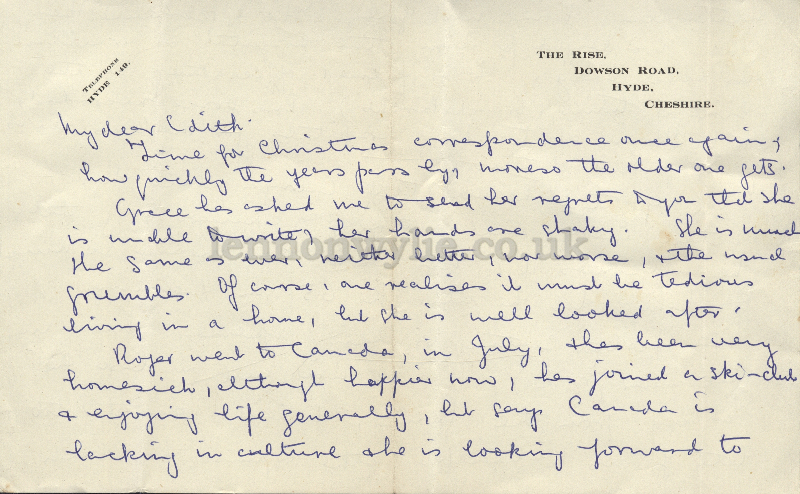 TELEPHONE
HYDE 149.
THE RISE,
DOWSON ROAD,
HYDE,
CHESHIRE.
My dear Edith.
Time for Christmas correspondence once again, &
how quickly the years pass by, moreso the older one gets.
Grace has asked me to send her regrets to you that she
is unable to write, her hands are shaky. She is much
the same as ever, neither better, nor worse, & the usual
grumbles. Of course, one realises it must be tedious
living in a home, but she is well looked after.
Roger went to Canada, in July, & has been very
homesick, although happier now, has joined a ski-club
& enjoying life generally, but says Canada is
lacking in culture & he is looking forward to
lennonwylie.co.uk